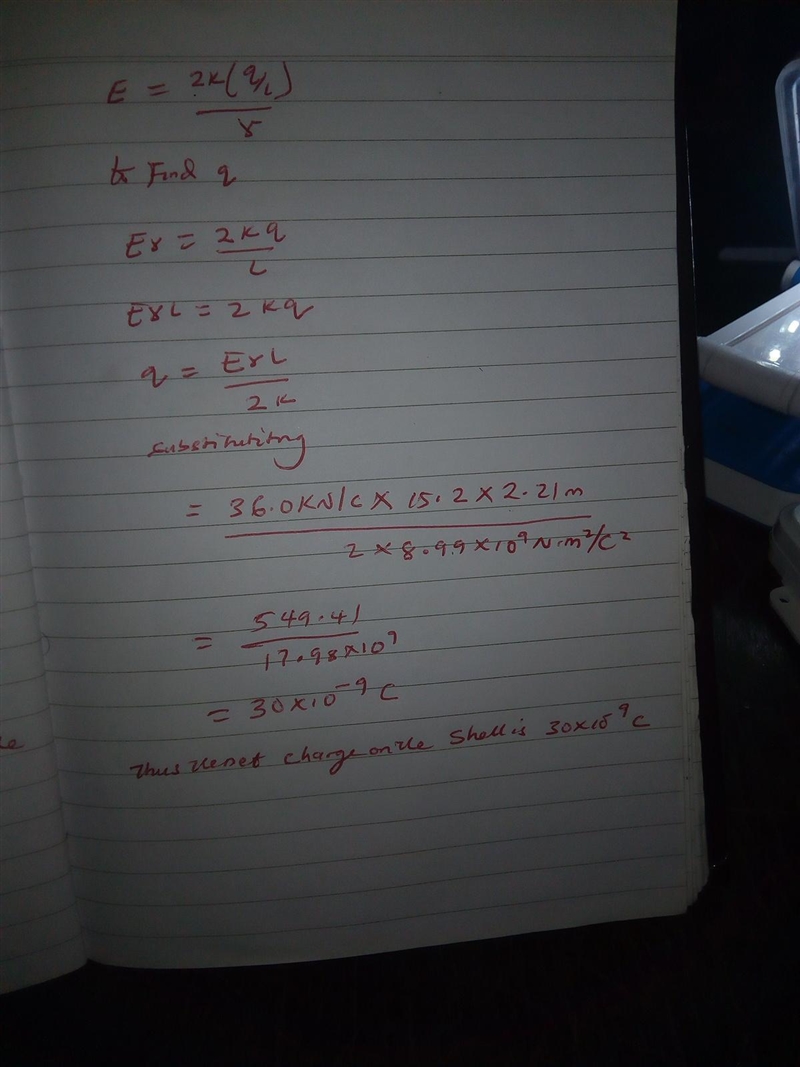 E = 2K(q/L)
r
to Find q
Er = 2Kq
L
ErL = 2Kq
q = ErL
2K
substitutitng
= 36.0KN/C X 15.2 X 2.21m
2 X 8.99 X 10⁹ N.m²/C²
= 549.41
17.98X10⁹
= 30X10⁻⁹ C
Thus the net charge on the Shell is 30X10⁻⁹ C